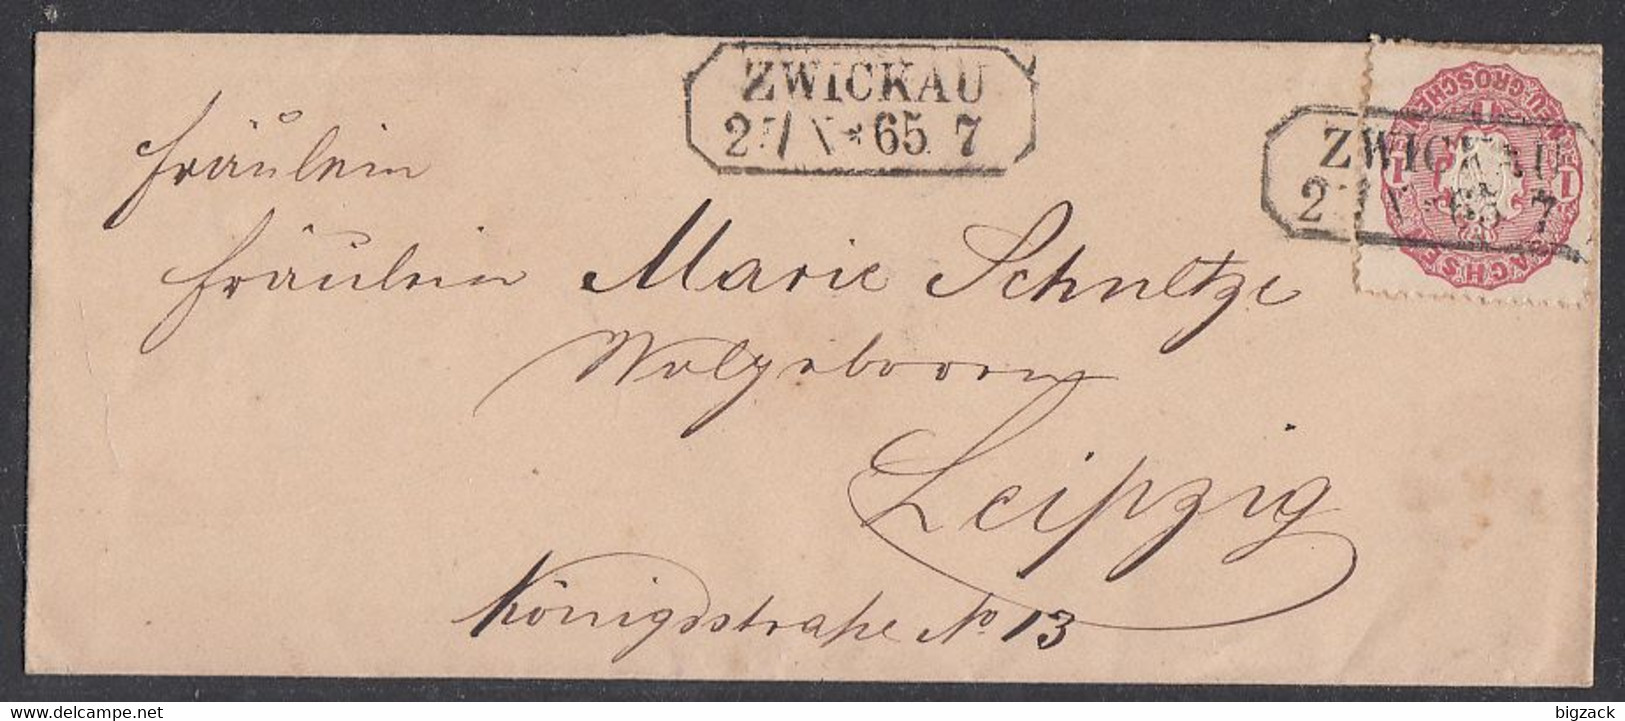 ZWICKAU
2 X * 65. 7
ZWICKAU
2 X * 65 7
NEU-GROSCHEN
1 1
SACHSEN
Fräulein
Fräulein Marie Schultze
Leipzig
Königsstraße No 13
www.delcampe.net
bigzack